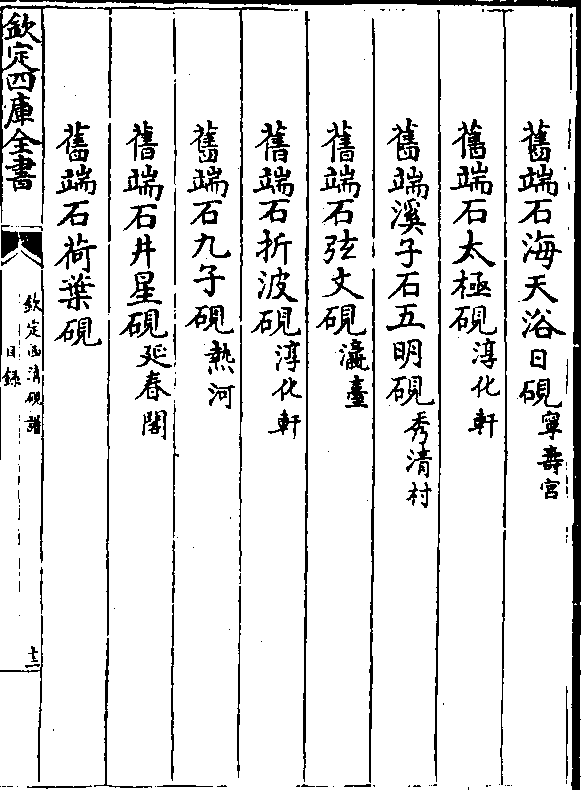 舊端石海天浴日硯寧壽宮
舊端石太極硯淳化軒
舊端溪子石五明硯秀清村
舊端石弦文硯瀛臺
舊端石折波硯淳化軒
舊端石九子硯熱河
舊端石井星硯延春閣
舊端石荷葉硯
欽定四庫全書
欽定西清硯譜
目録
十三